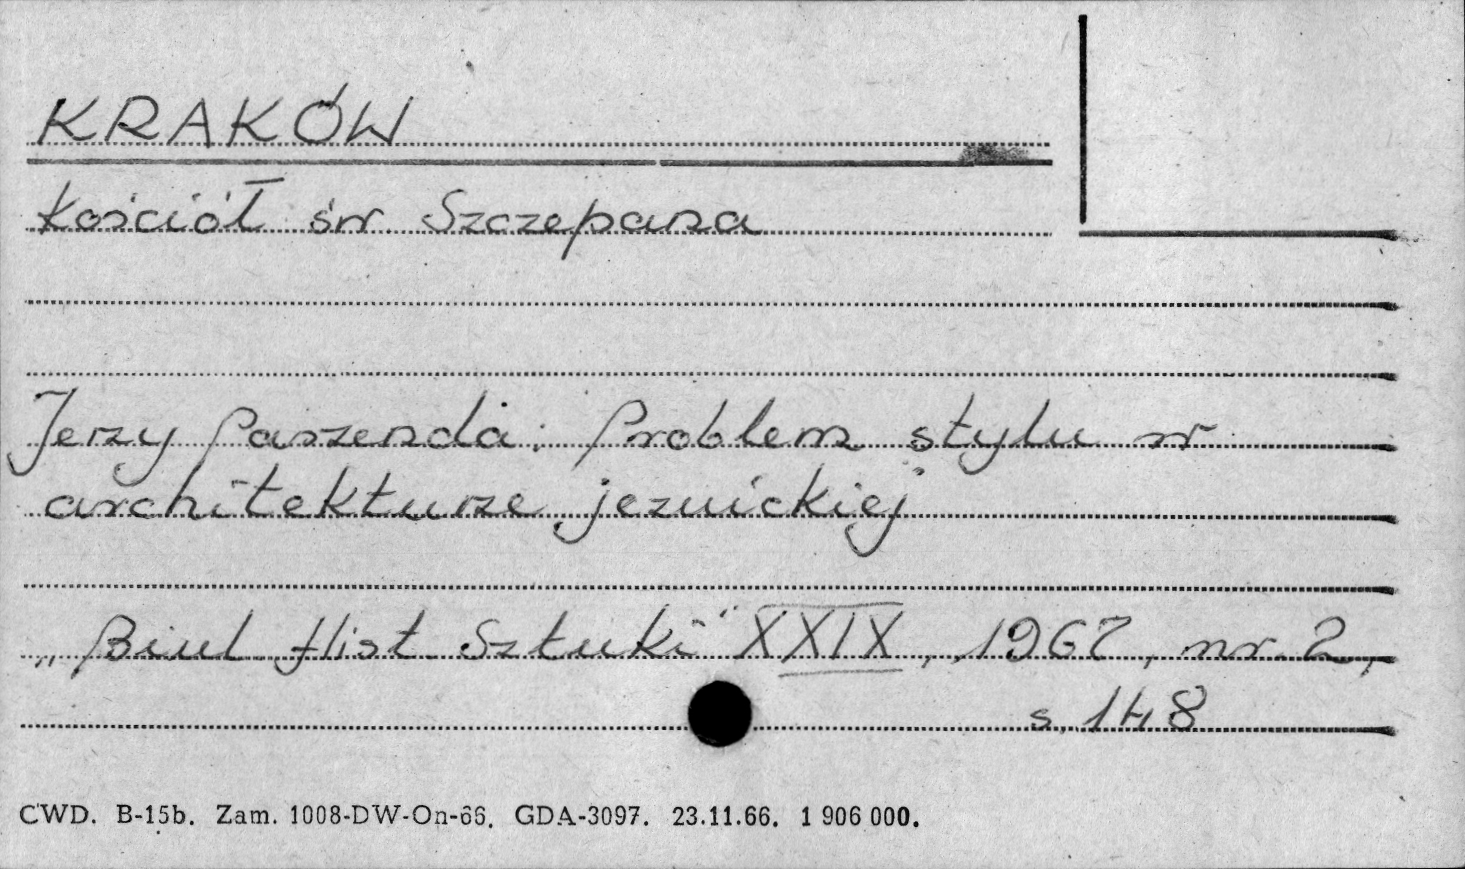 KRAKÓW
Kościół św Szczepana
Jerzy Paszenda: Problem stylu w
architekturze jezuickiej
„Biul Hist Sztuki" XXIX, 1967, nr 2,
s. 148
CWD. B-15b. Zam. 1008-DW-On-66. GDA-3097. 23.11.66. 1 906 000.